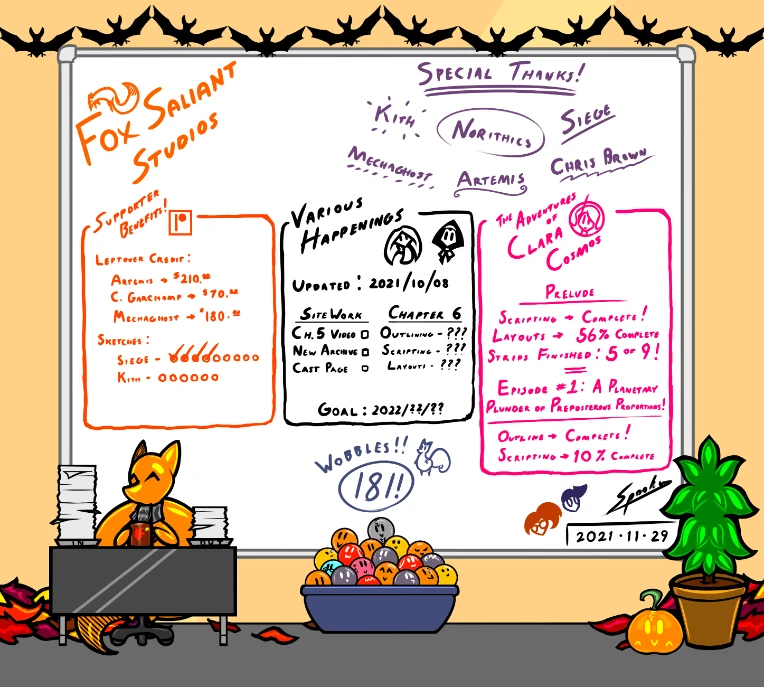 Fox Saliant
Studios
Special Thanks!
Kith
Norithics
Siege
Mechaghost
Artemis
Chris Brown
Supporter
Benefits!
Leftover Credit:
Artemis → $210.00
C. Garchomp → $70.00
Mechaghost → $180.00
Sketches:
Siege -
Kith -
Various
Happenings
Updated: 2021/10/08
Site Work
Chapter 6
Ch. 5 Video
Outlining - ???
New Archive
Scripting - ???
Cast Page
Layout - ???
Goal: 2022/??/??
The Adventures
of
Clara
Cosmos
Prelude
Scripting → Complete!
Layouts → 56% Complete
Strips Finished: 5 of 9!
Episode #1: A Planetary
Plunder of Preposterous Proportions!
Outline → Complete!
Scripting → 10% Complete
Wobbles!!
181!
2021-11-29